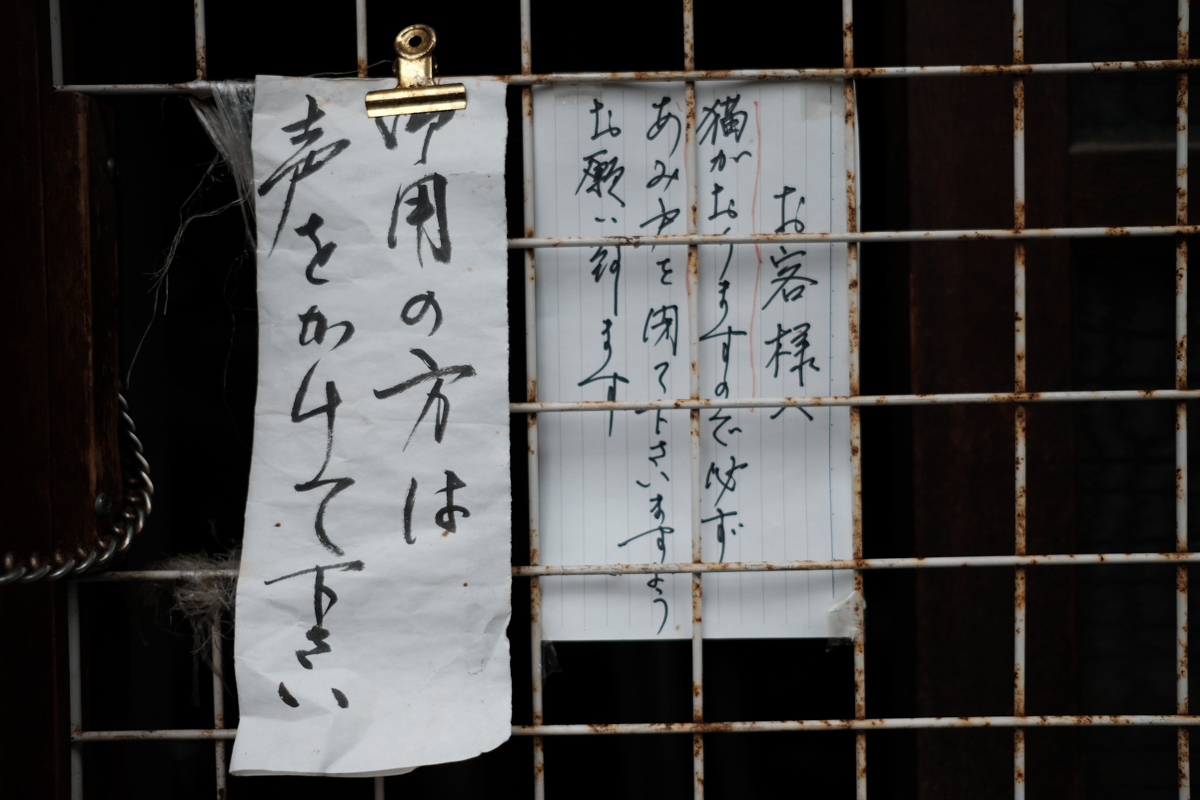 お客様へ
猫がおりますので必ず
あみ戸を閉て下さいますよう
お願い致します
御用の方は
声をかけて下さい